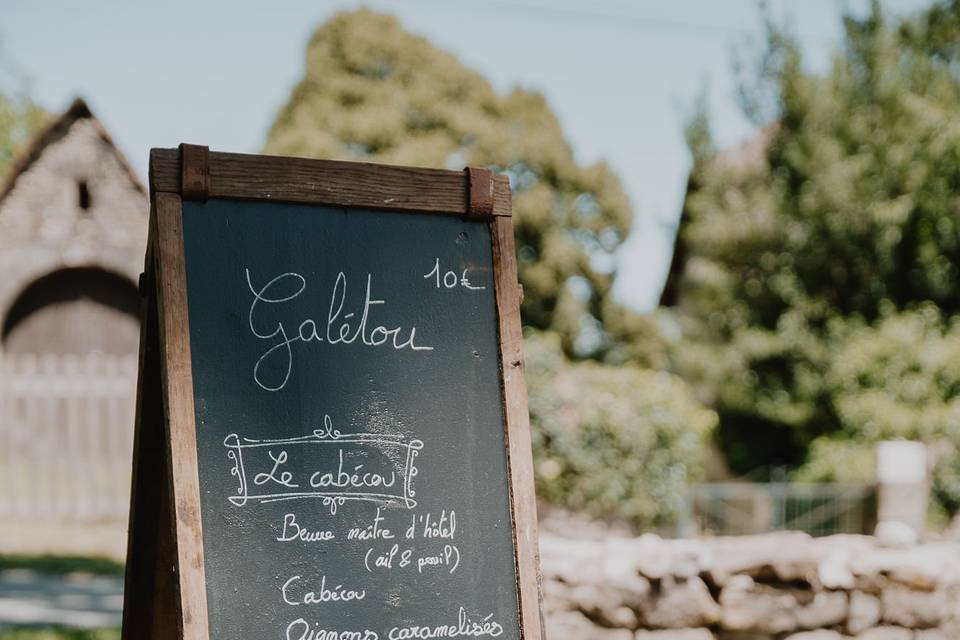 10€
Galétou
Le cabécou
Beurre maître d'hôtel
(ail & persil)
Cabécou
Oignons caramelisés